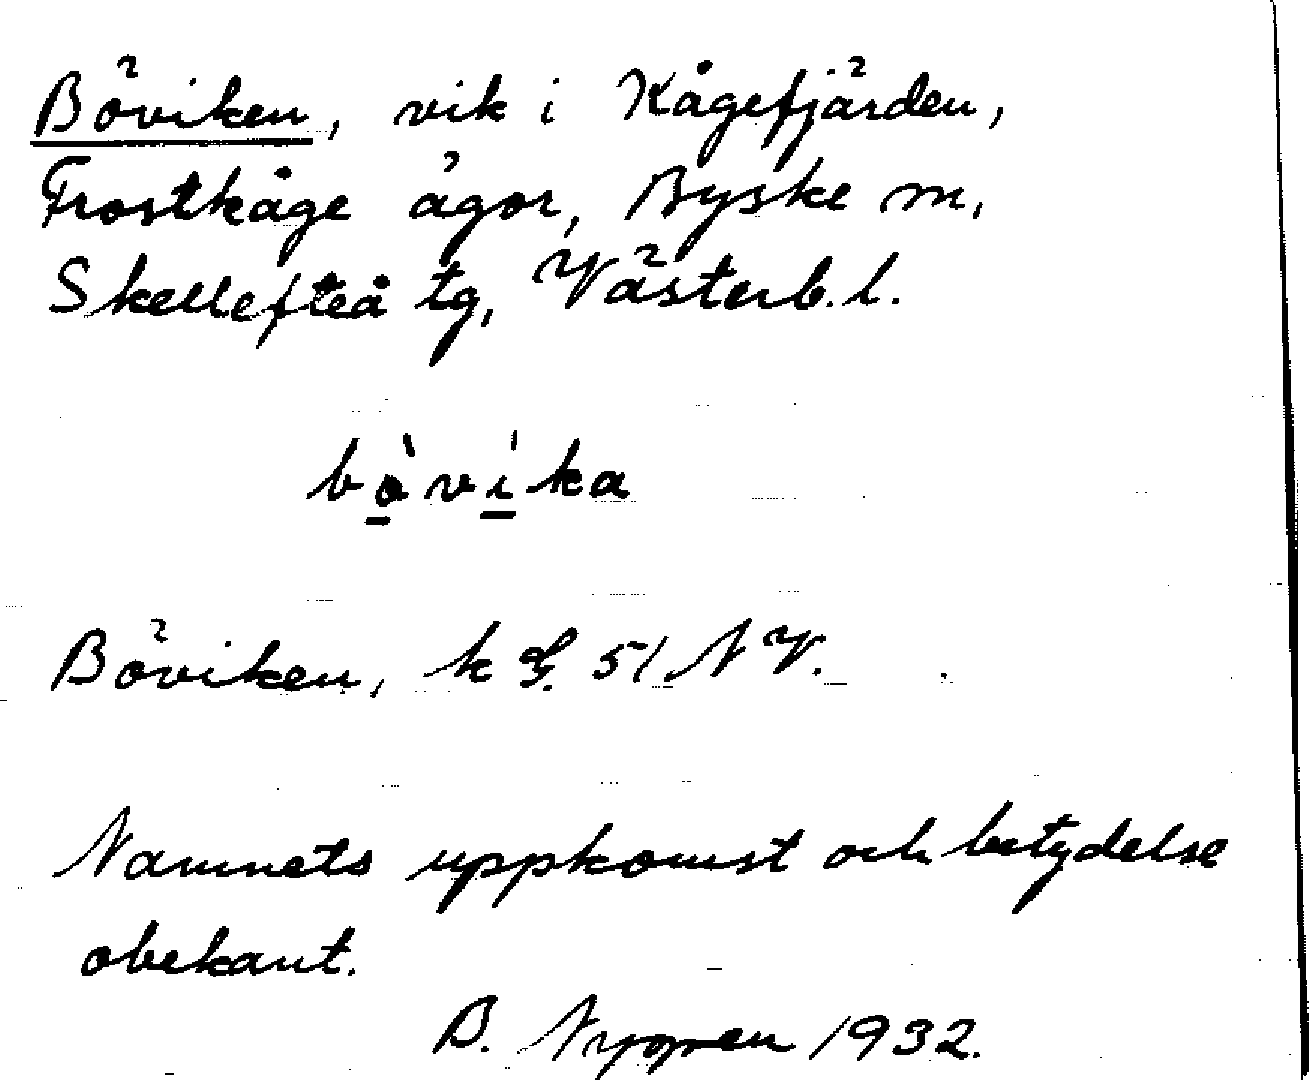 Böviken, vik i Kågefjärden,
Frostkåge ägor, Byske sn,
Skellefteå tg, Västerb. l.
bòvíka
Böviken, k G. 51 N V.
Namnets uppkomst och betydelse
obekant.
B. Nygren 1932.